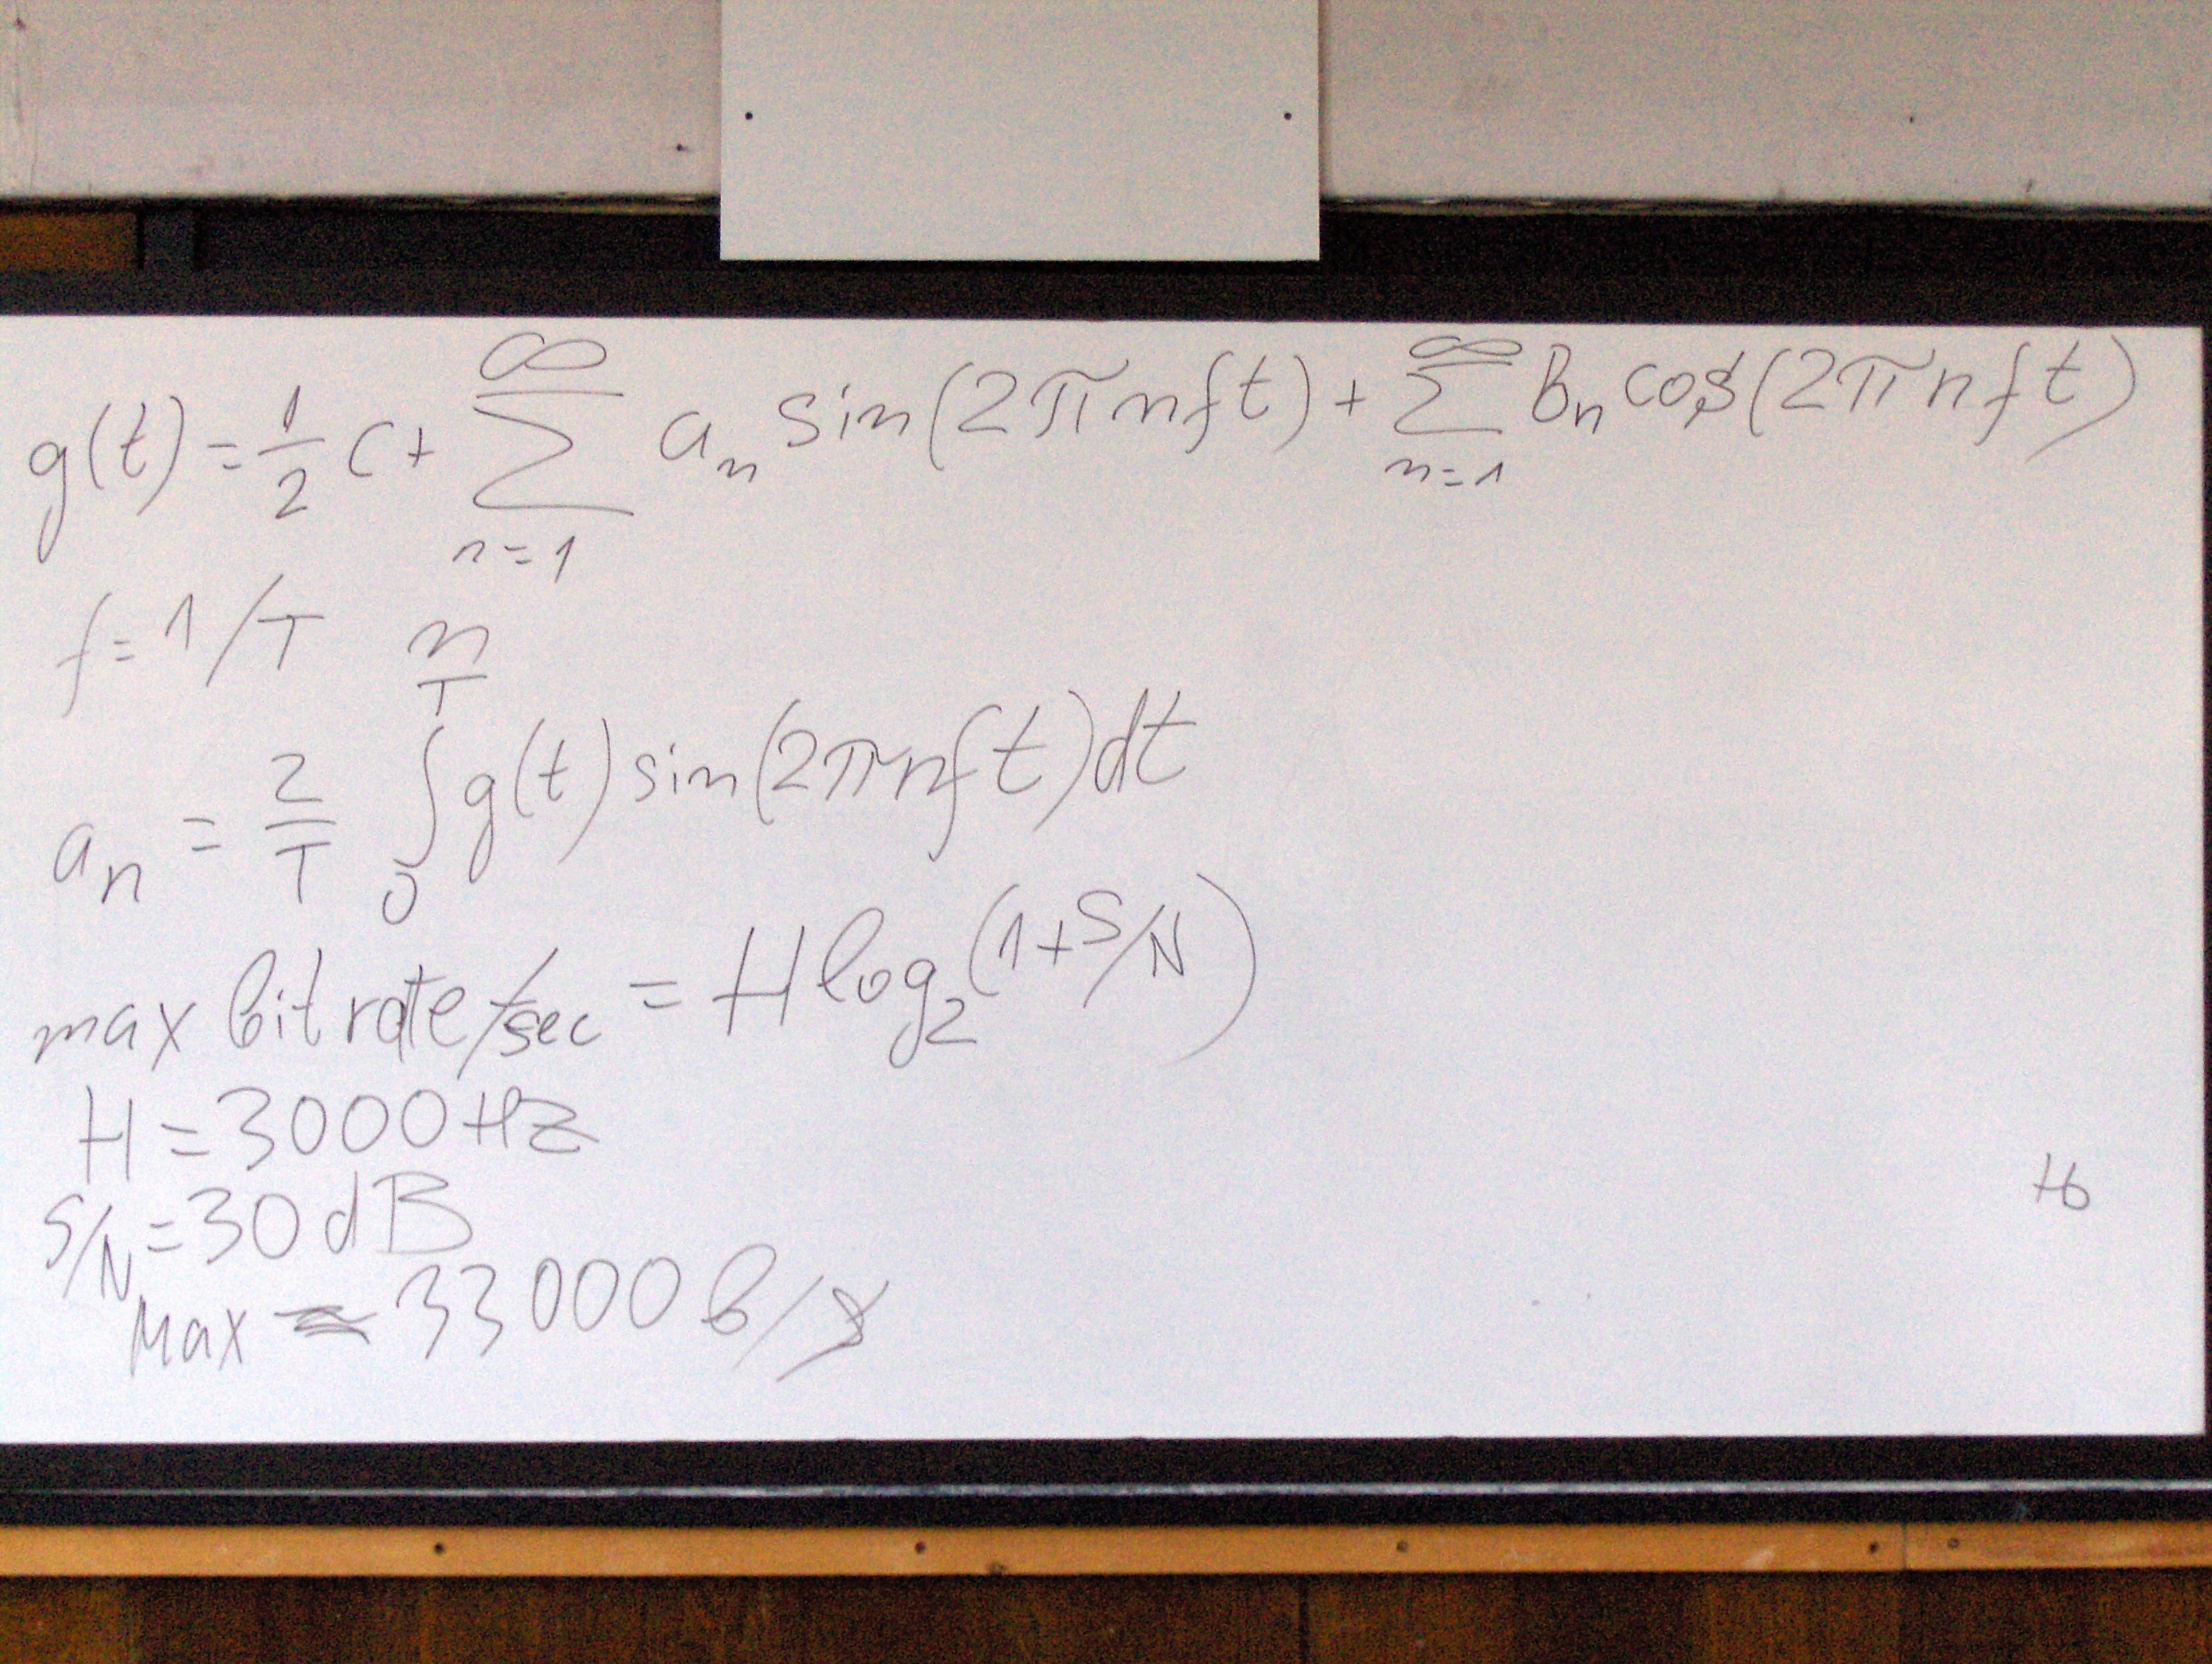 g(t) = 1/2 c + ∑_{n=1}^{∞} a_n sin(2πnft) + ∑_{n=1}^{∞} B_n cos(2πnft)
f = 1/T n
a_n = 2/T ∫_0^T g(t) sin(2πnft)dt
max bit rate/sec = H log_2 (1+S/N)
H = 3000 Hz
S/N = 30 dB
Max = 33000 b/s